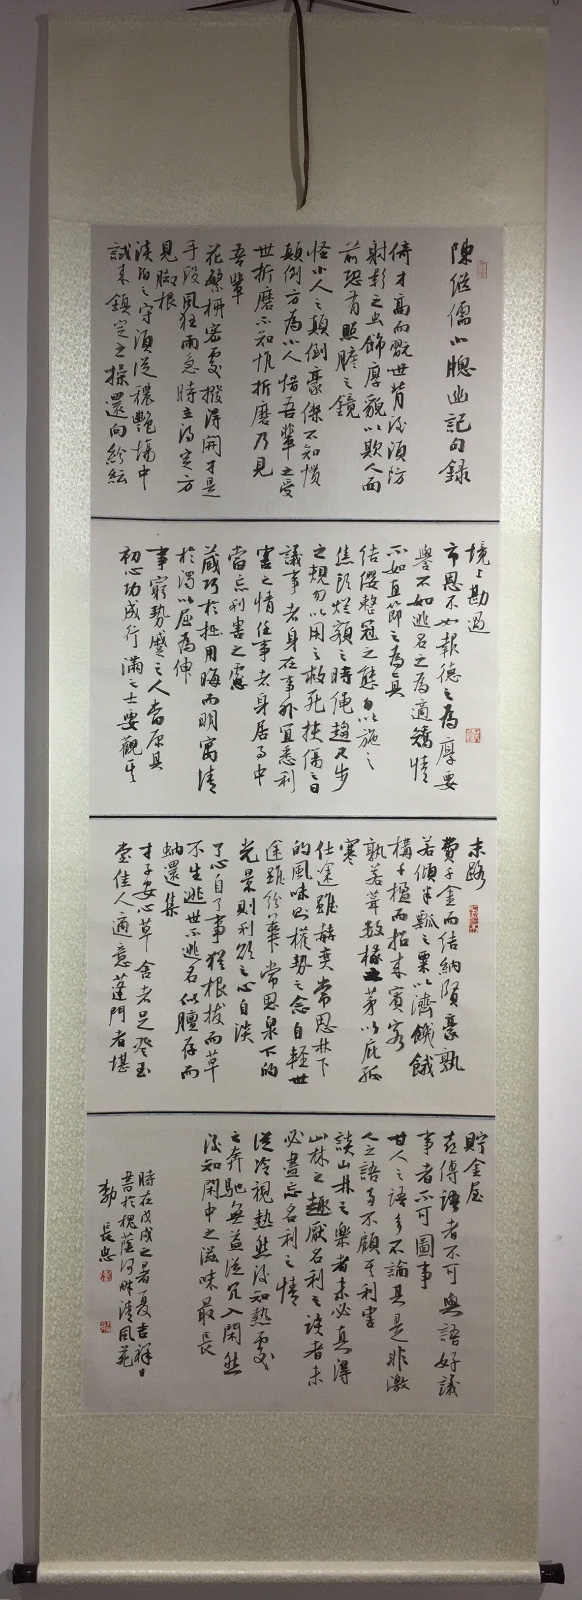 陳繼儒小窗幽記句錄
倚才高而翫世背後須防
射影之虫飾厚貌以欺人面
前恐有照膽之鏡
怪小人之顛倒豪傑不知慣
顛倒方為小人惜吾輩之受
世折磨不知惟折磨乃見
吾輩
花繁柳密處撥得開才是
手段風狂雨急時立得定方
見腳根
淡泊之守須從穠艷場中
試來鎮定之操還向紛紜
境上勘過
市恩不如報德之為厚要
譽不如逃名之為適矯情
不如直節之為真
結纓整冠之態勿以施之
焦頭爛額之時繩趨尺步
之規勿以用之救死扶傷之日
議事者身在事外宜悉利
害之情任事者身居事中
當忘利害之慮
藏巧於拙用晦而明寓清
於濁以屈為伸
事窮勢蹙之人當原其
初心功成行滿之士要觀其
末路
費千金而結納賢豪孰
若傾半瓢之粟以濟饑餓
構千楹而招來賓客
孰若葺數椽之茅以庇孤
寒
仕途雖赫奕常思林下
的風味則權勢之念自輕世
途雖紛華常思泉下的
光景則利欲之心自淡
了心自了事猶根拔而草
不生逃世不逃名似膻存而
蚋還集
才子安心草舍者足登玉
堂佳人適意蓬門者堪
貯金屋
喜傳語者不可與語好議
事者不可圖事
甘人之語多不論其是非激
人之語多不顧其利害
談山林之樂者未必真得
山林之趣厭名利之談者未
必盡忘名利之情
從冷視熱然後知熱處
之奔馳無益從冗入閑然
後知閑中之滋味最長
時在戊戌之暑夏吉祥日
書於槐蔭河畔清風苑
長忠